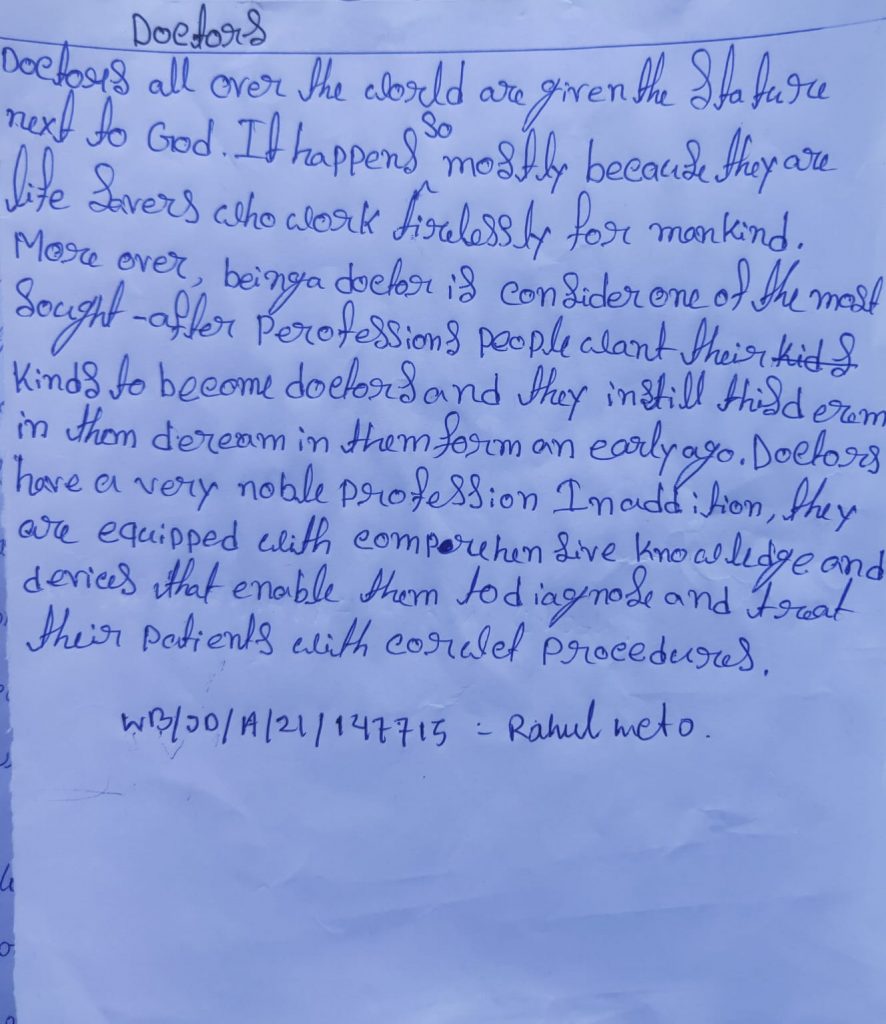 Doctors
Doctors all over the world are given the stature
next to God. It happens so mostly because they are
life savers who work tirelessly for mankind.
More over, being a doctor is consider one of the most
sought-after Perofessions people want their kids
kinds to become doctors and they instill this d erem
in thom deream in them form an early ago. Doctors
have a very noble profession In addition, they
are equipped with comporehensive knowledge and
devices that enable them to diagnose and treat
their patients with procedures.
WB/JD/A/21/147715 - Rahul meto.